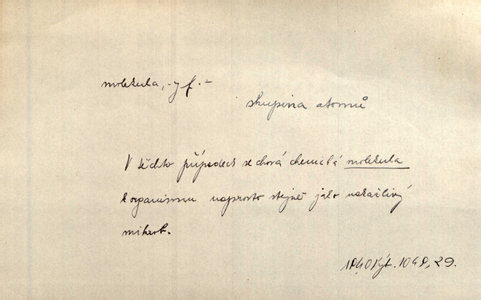 molekula, -y f. –
skupina atomů
V těchto případech se chová chemická molekula
k organismu naprosto stejně jako nakažlivý
mikrob.
1948, 29.